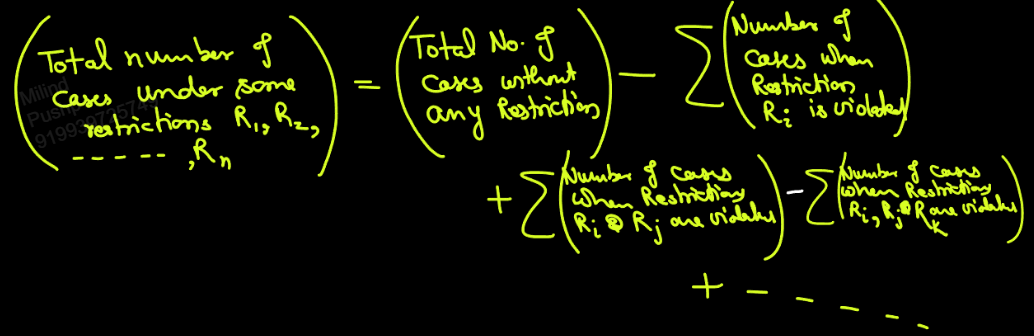 (Total number of cases under some restrictions R₁, R₂, -----, Rₙ) = (Total No. of cases without any Restriction) - ∑(Number of cases when Restriction Rᵢ is violated)
+ ∑(Number of cases when Restrictions Rᵢ & Rⱼ are violated) - ∑(Number of cases when Restrictions Rᵢ, Rⱼ & Rₖ are violated)
+ - - - - -
Milind